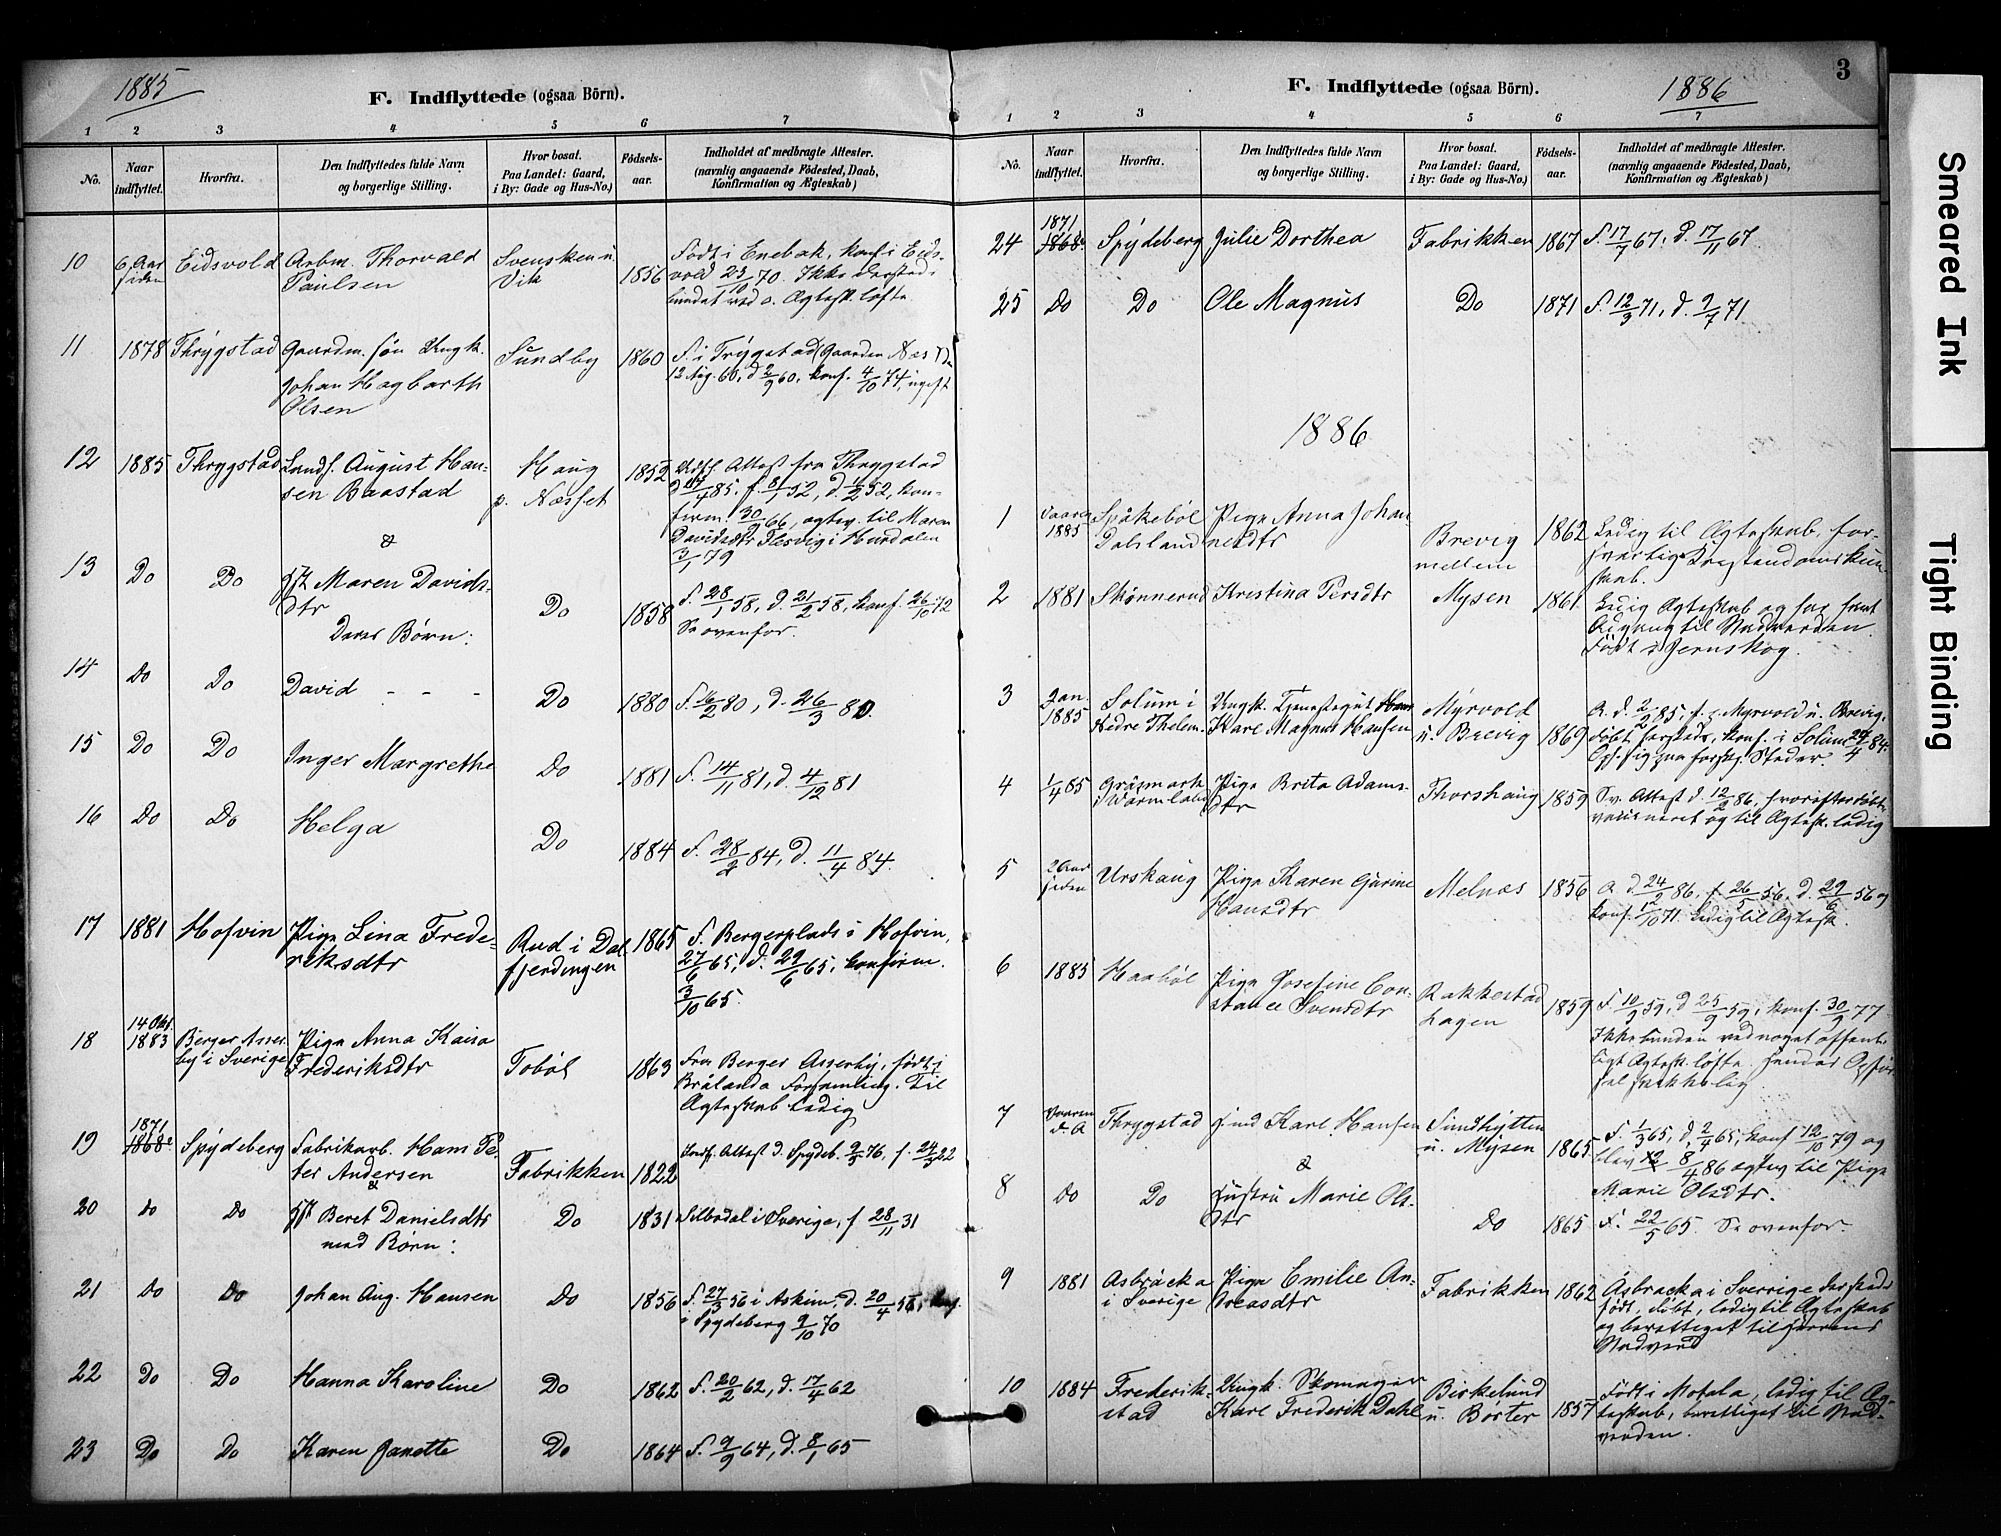 1885
F. Indflyttede (ogsaa Börn).
1 2 3 4 5 6 7
No.
Naar indflyttet.
Hvorfra.
Den Indflyttedes fulde Navn og borgerlige Stilling.
Hvor bosat. Paa Landet: Gaard, i By: Gade og Hus-No.)
Födsels-aar.
Indholdet af medbragte Attester. (navnlig angaaende Födested, Daab, Konfirmation og Ægteskab)
10 6 Aar siden Eidsvold Arbm. Thorvald Paulsen Svensken u. Vik 1856 Født i Enebak, konf. i Eidsvold 23/10 70. Ikke dersteds bundet ved o. Ægtesk. løfte.
11 1878 Thrygstad Gaardm. søn Ungk. Johan Hagbarth Olsen Sundby 1860 F. i Trygstad (Gaarden Næs) 12 Aug. 60, d. 2/9 60, konf. 4/10 74, ugift
12 1885 Thrygstad Landh. August Hansen Baastad Haug p. Næsset 1852 Udfl. Attest fra Thrygstad f. 8/1 52, konfirm. 30/9 66, ægtev. til Maren Davidsdtr Flesvig i Hurdalen 3/1 79
&
13 Do Do Maren Davidsdtr Do 1858 F. 28/1 58, d. 21/2 58, konf. 26/10 72 Se ovenfor.
Deres Børn:
14 Do Do David - - - Do 1880 F. 16/2 80, d. 26/3 80.
15 Do Do Inger Margrethe Do 1881 F. 14/11 81, d. 4/12 81
16 Do Do Helga Do 1884 F. 28/2 84, d. 11/4 84.
17 1881 Hofvin Pige Lina Frederiksdtr Rud i Dalfjerdingen 1865 F. Bergerplads i Hofvin, 27/6 65, d. 29/6 65, konfirm. 3/10 65.
18 14 Okt. 1883 Berger Asserby i Sverige Pige Anna Kaisa Frederiksdtr Tobøl 1863 Fra Berger Asserby, født i Brålanda Forsamling. Til Ægteskab ledig
19 1871 1868 Spydeberg Fabrikarb. Hans Peter Andersen Fabrikken 1822 Indf. Attest d. Spydeb. 9/3 76, f. 24/3 22
&
20 Do Do Beret Danielsdtr Do 1831 Silbodal i Sverige, f. 28/11 31
med Børn:
21 Do Do Johan Aug. Hansen Do 1856 F. 27/3 56 i Askim, d. 20/4 56, konf. i Spydeberg 9/10 70
22 Do Do Hanna Karoline Do 1862 F. 20/2 62, d. 17/4 62
23 Do Do Karen Janette Do 1864 F. 9/9 64, d. 8/1 65
F. Indflyttede (ogsaa Börn).
1886
3
1 2 3 4 5 6 7
No.
Naar indflyttet.
Hvorfra.
Den Indflyttedes fulde Navn og borgerlige Stilling.
Hvor bosat. Paa Landet: Gaard, i By: Gade og Hus-No.)
Födsels-aar.
Indholdet af medbragte Attester. (navnlig angaaende Födested, Daab, Konfirmation og Ægteskab)
24 1871 1868 Spydeberg Julie Dorthea Fabrikken 1867 F. 17/7 67, d. 17/11 67.
25 Do Do Ole Magnus Do 1871 F. 12/3 71, d. 9/7 71
1886
1 Vaaren 1885 Dalsland Pige Anna Johannesdtr Brevig mellem 1862 Ledig til Ægteskab. forsvarlig Kristendomskundskab.
2 1881 Skönnerud Kristina Persdtr Mysen 1861 Ledig Ægteskab og har havt Adgang til Nadverden. Født i Jernskog.
3 Jan. 1885 Solum i Nedre Thelem. Ungk. Tjenestegut Hans Karl Magnus Hansen Myrvold u. Brevig 1869 A. d. 2/2 85 f. p. Myrvold u. Brevig, døbt sarsteds, konf. i Solum 84.
4 1/4 85 Gräsmark Wärmland Pige Brita Adamsdtr Thorshaug 1859 Sv. Attest d. 12/2 86, hvorefter døbt, vaccineret og til Ægtesk. ledig
5 2 Aar siden Urskaug Pige Karen Gurine Hansdtr Melnæs 1856 A. d. 24/2 86, f. 26/5 56, d. 29/6 56 og konf. 1/10 71. Ledig til Ægtesk.
6 1885 Haabøl Pige Josefine Constance Svensdtr Rakkestad hagen 1859 F. 10/9 59, d. 25/9 59, konf. 30/9 77 Ikke bunden ved noget offentligt Ægtesk. løfte. Hendes Opførsel skikkelig
7 Vaaren d. A Thrygstad Karl Hansen Sundhytten u. Mysen 1865 F. 1/3 65, d. 2/4 65, konf. 12/10 79 og blev 8/4 86 ægtev. til Pige Marie Olsdtr.
&
8 Do Do Hustru Marie Olsdtr Do 1865 F. 22/5 65. Se ovenfor.
9 1881 Asbräcka i Sverige Pige Emilie Andreasdtr Fabrikken 1862 Asbracka i Sverrige dersteds født, døbt, ledig til Ægteskab og berettiget til Herrens Nadverd
10 1884 Frederikstad Ungk. Skomager Karl Frederik Dahl Birkelund u. Børter 1857 Født i Motala, ledig til Ægteskab, berettiget til Nadverden.
Smeared Ink
Tight Binding